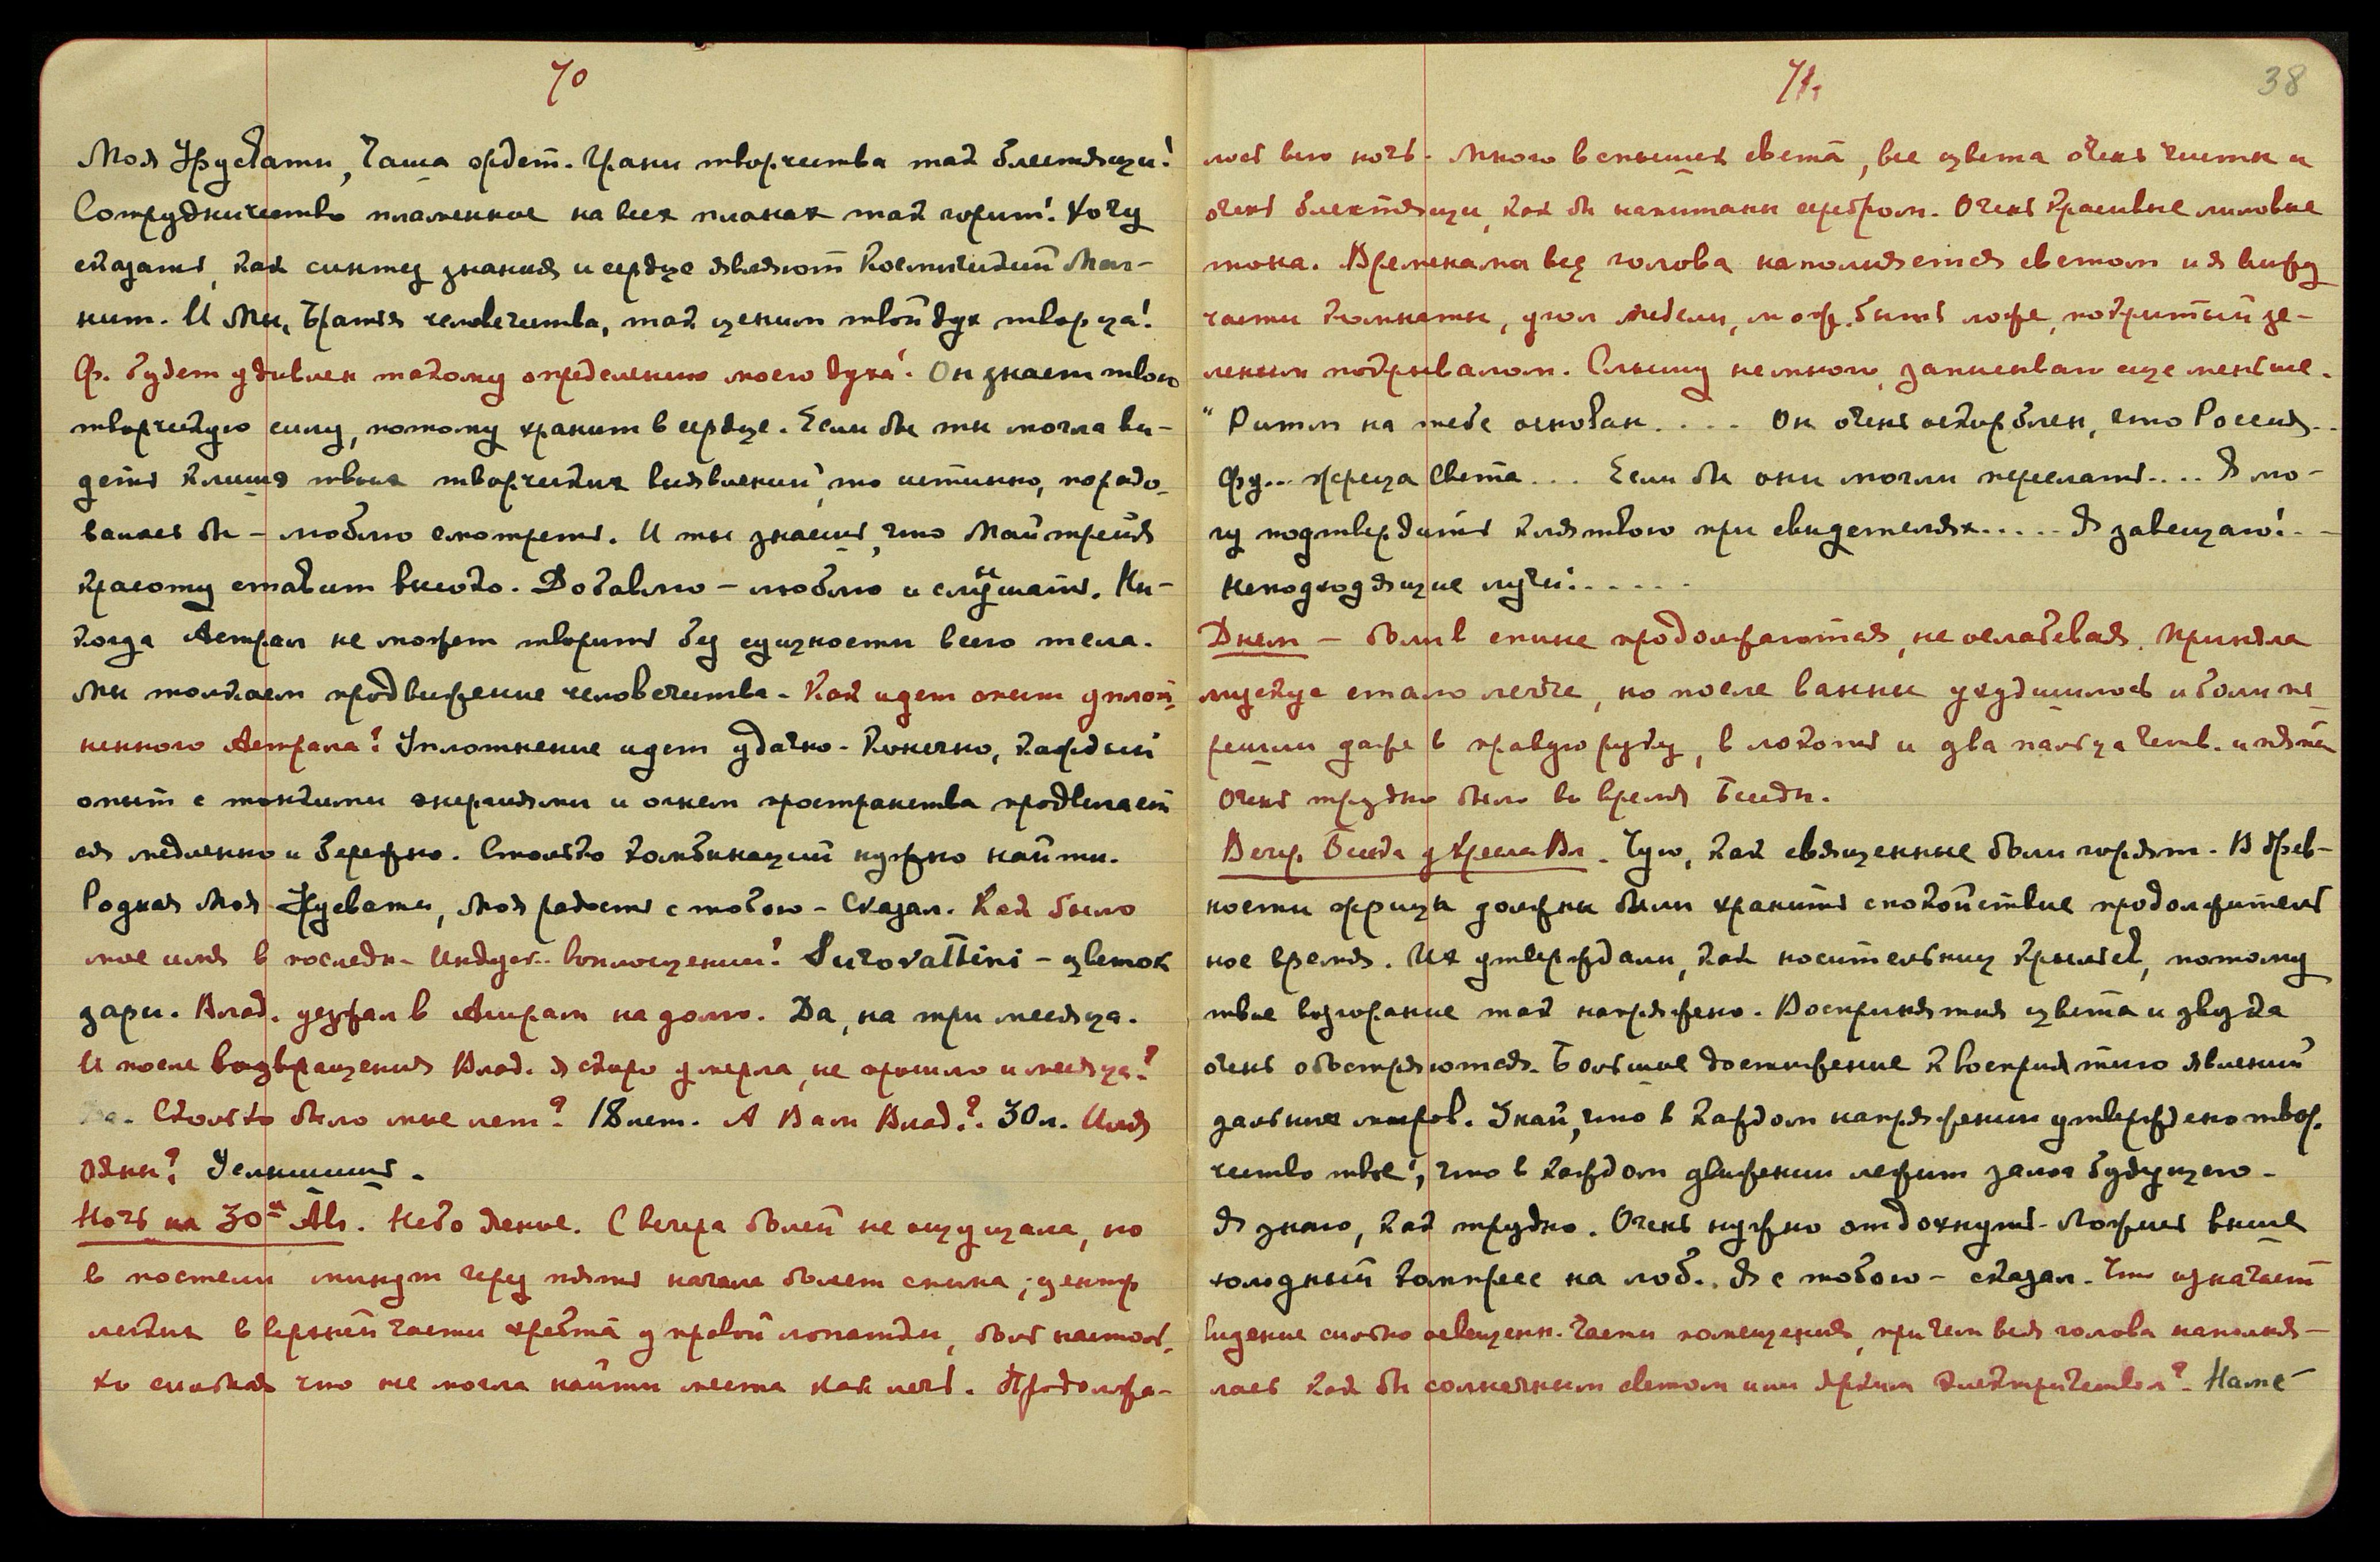 70
Моя Урусвати, Чаша ордет. Грани творчества так блестящи!
Сотрудничество пламенное на всех планах так горит! Хочу
сказать, как синтез знания и сердце являют Космический Маг-
нит. И Мы, Братья человечества, так ценим твой дух творца!
Ф. будет удивлен такому определению моего духа! Он знает твою
творческую силу, потому хранит в сердце. Если бы ты могла ви-
деть клише твоих творческих выявлений, то истинно, порадо-
валась бы – люблю смотреть. И ты знаешь, что Майтрейя
красоту ставит высоко. Добавлю – люблю и слушать. Ни-
когда Астрал не может творить без единости всего тела.
Мы толкаем продвижение человечества. Как идет опыт уплот-
ненного Астрала? Уплотнение идет удачно. Конечно, каждый
опыт с тонкими энергиями и огнем пространства продвигает
ся медленно и бережно. Столько комбинаций нужно найти.
Родная Моя Урусвати, Моя радость с тобою – Сказал. Как было
мое имя в последн. Индусс. воплощении? Surovattini – цветок
зари. Влад. уезжал в Ашрам на долго. Да, на три месяца.
И после возвращения Влад. я скоро умерла, не прошло и месяца?
Да. Сколько было мне лет? 18 лет. А Вам Влад.? 30 л. Имя
Ояны? Услышишь.
Ночь на 30ое Авг. Небо ясное. С вечера болей не ощущала, но
в постели минут через пять начала болеть спина; центр
легких в верхней части хребта у правой лопатки, боль настоль-
ко сильная что не могла найти места как лечь. Продолжа-
71.
38
лось всю ночь. Много вспышек света, все цвета очень чисты и
очень блестящи, как бы напитаны серебром. Очень красивые лиловые
тона. Временами вся голова наполняется светом и я вижу
части комнаты, угол мебели, мож. быть ложе, покрытый зе-
леным покрывалом. Слышу немного, записываю еще меньше.
"Ритм на тебе основан.... Он очень оскорблен, что Россия..
Фу... жреца Света... Если бы они могли переслать.... Я мо-
гу подтвердить клятвою при свидетелях..... Я завещаю!..
Неподходящие лучи!.....
Днем – боли в спине продолжаются, не ослабевая. Приняла
мускус стало легче, но после ванны ухудшилось и боли пе-
решли даже в правую руку, в локоть и два пальца четв. и пятый
Очень трудно было во время Беседы.
Вечер. Беседа у Кресла Вл. Чую, как священные боли горят. В древ-
ности жрицы должны были хранить спокойствие продолжитель
ное время. Их утверждали, как носительниц крыльев, потому
твое возгорание так напряжено. Восприятия цвета и звука
очень обостряются. Большое достижение к восприятию явлений
дальних миров. Знай, что в каждом напряжении утверждено твор-
чество твое!, что в каждом движении лежит залог будущего.
Я знаю, как трудно. Очень нужно отдохнуть. Ложись выше
холодный компресс на лоб. Я с тобою – сказал. Что означает
видение сильно освещенн. части помещения, при чем вся голова наполня-
лась как бы солнечным светом или ярким электричеством?